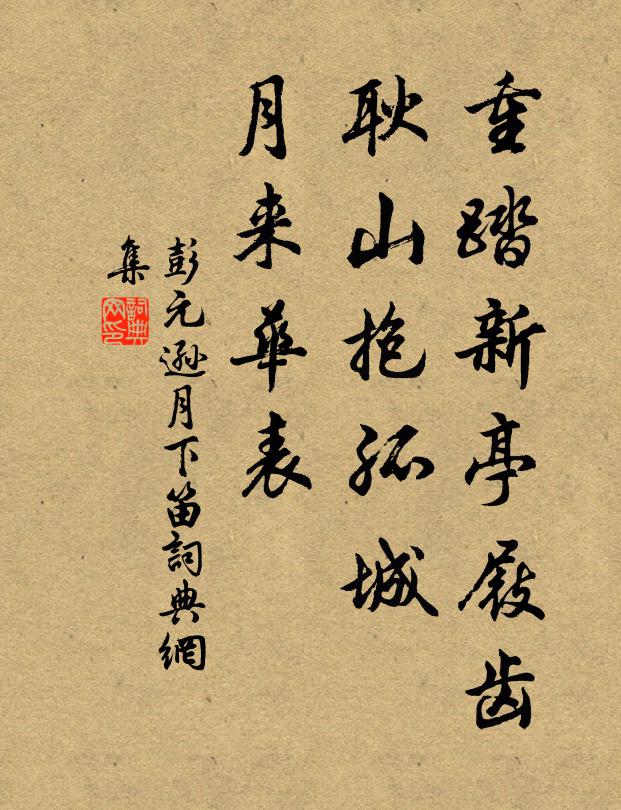 重踏新亭屐齿
耿山抱孤城
月来華表
彭元遜月下笛詞典網
集
詞典
网印